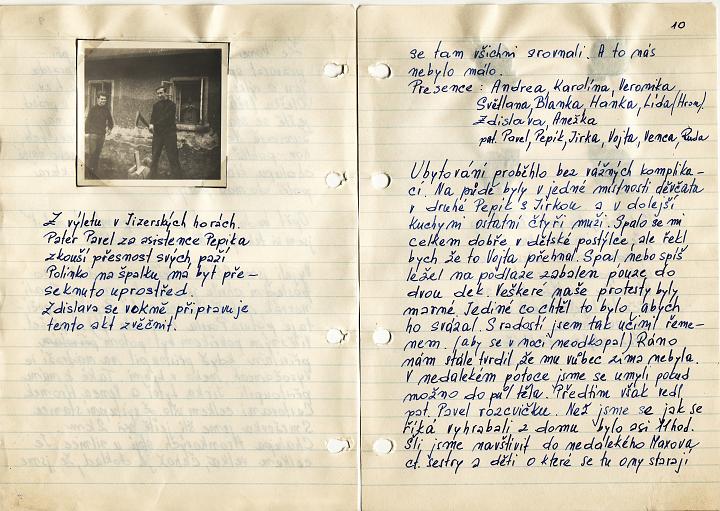 Z výletu v Jizerských horách.
Pater Pavel za asistence Pepika
zkouší přesnost svých paží
Polínko na špalku má být pře-
seknuto uprostřed.
Zdislava se v okně připravuje
tento akt zvěčnit.
10
se tam všichni srovnali. A to nás
nebylo málo.
Presence: Andrea, Karolína, Veronika,
Světlana, Blanka, Hanka, Lída (Hron)
Zdislava, Anežka
pat. Pavel, Pepík, Jirka, Vojta, Venca, Ruda
Ubytování proběhlo bez vážných komplika-
cí. Na půdě byly v jedné místnosti děvčata
v druhé Pepík s Jirkou a v dolejší
kuchyni ostatní čtyři muži. Spalo se mi
celkem dobře v dětské postýlce, ale řekl
bych že to Vojta přehnal. Spal, nebo spíš
ležel na podlaze zabalen pouze do
dvou dek. Veškeré naše protesty byly
marné. Jediné co chtěl to bylo, abych
ho svázal. S radostí jsem tak učinil řeme-
nem. (aby se v noci neodkopal) Ráno
nám stále tvrdil, že mu vůbec zima nebyla.
V nedalekém potoce jsme se umyli pokud
možno do půl těla. Předtím však vedl
pat. Pavel rozcvičku. Než jsme se jak se
říká vyhrabali z domu bylo asi 11 hod.
Šli jsme navštívit do nedalekého Maxova
ct. sestry a děti o které se tu ony starají